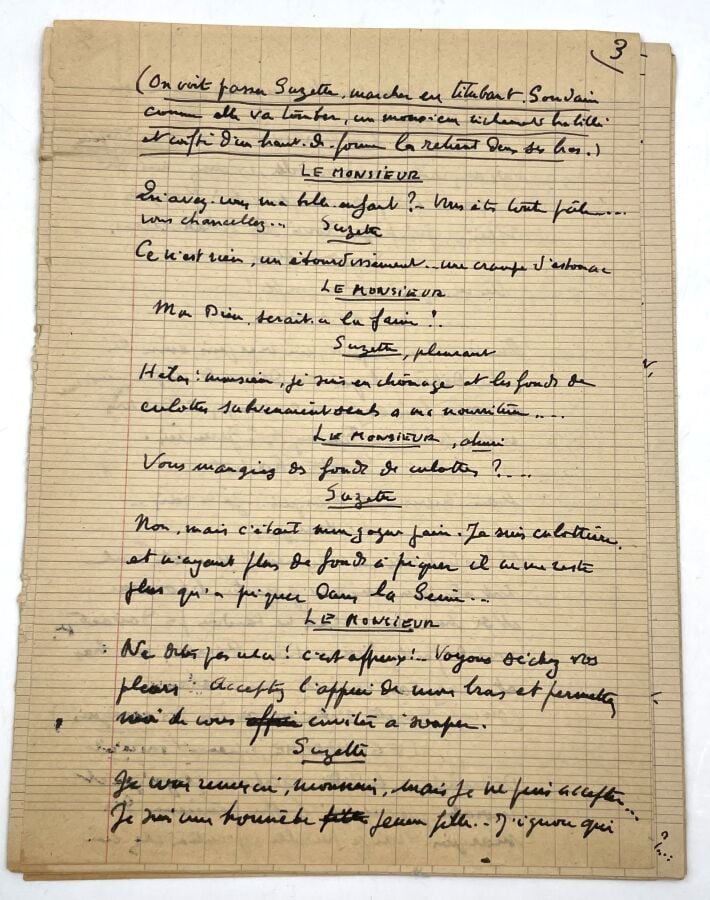 3
(On voit passer Suzette, marcher en titubant. Soudain
comme elle va tomber, un monsieur richement habillé
et coiffé d'un haut-de-forme la retient dans ses bras.)
LE MONSIEUR
Qu'avez-vous ma belle enfant ?.. Vous êtes toute pâle....
vous chancelez...
Suzette
Ce n'est rien, un étourdissement... une crampe d'estomac
LE MONSIEUR
Mon Dieu, serait-ce la faim !.
Suzette, pleurant
Hélas ! monsieur, je suis en chômage et les fonds de
culottes subvenaient seuls à ma nourriture....
LE MONSIEUR, ahuri
Vous mangiez des fonds de culottes ?....
Suzette
Non, mais c'était mon gagne pain. Je suis culottière,
et n'ayant plus de fonds à piquer il ne me reste
plus qu'à piquer dans la Seine...
LE MONSIEUR
Ne dites pas cela ! c'est affreux !.. Voyons séchez vos
pleurs. Acceptez l'appui de mon bras et permettez
moi de vous inviter à souper.
Suzette
Je vous remercie, monsieur, mais je ne puis accepter...
Je suis une honnête fille jeune fille.. J'ignore qui